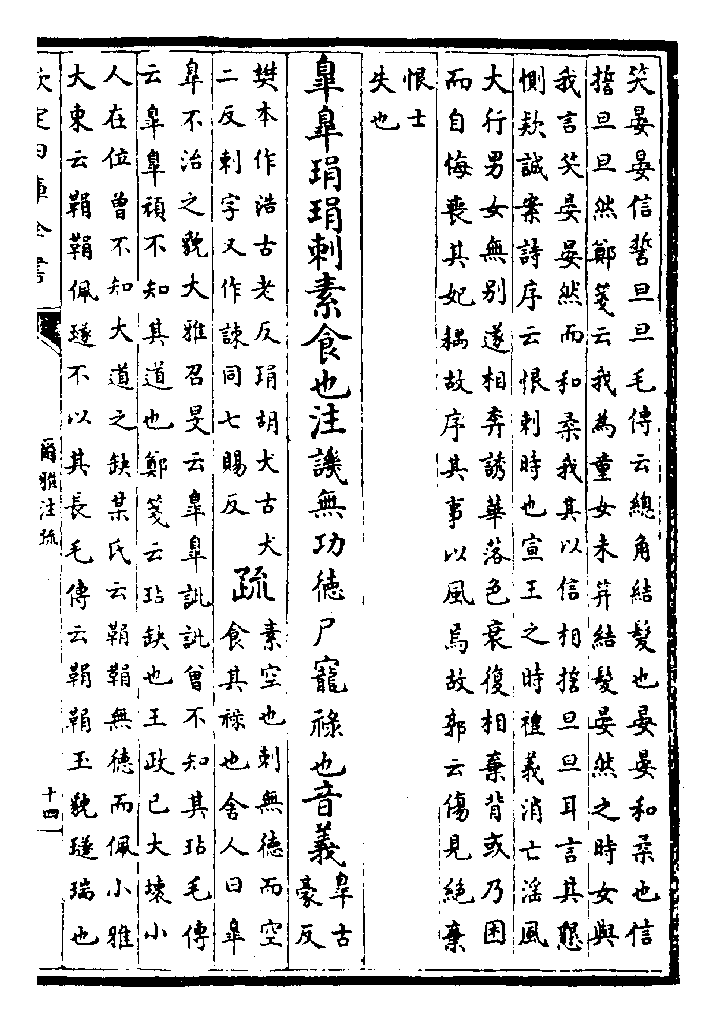 笑晏晏信誓旦旦毛傳云總角結髮也晏晏和柔也信
誓旦旦然鄭箋云我為童女未筓結髮晏然之時女與
我言笑晏晏然而和柔我其以信相誓旦旦耳言其懇
惻欵誠案詩序云恨刺時也宣王之時禮義消亡滛風
大行男女無别遂相奔誘華落色衰復相棄背或乃困
而自悔喪其妃耦故序其事以風焉故郭云傷見絶棄
恨士
失也
臯臯琄琄刺素食也注譏無功徳尸寵祿也音義臯古
豪反
樊本作浩古老反琄胡犬古犬
二反刺字又作諫同七賜反
疏素空也刺無徳而空
食其祿也舍人曰臯
臯不治之貌大雅召旻云臯臯訿訿曽不知其玷毛傳
云臯臯頑不知其道也鄭箋云玷缺也王政已大壊小
人在位曽不知大道之缺某氏云鞙鞙無徳而佩小雅
大東云鞙鞙佩璲不以其長毛傳云鞙鞙玉貌璲瑞也
欽定四庫全書
爾雅注疏
十四